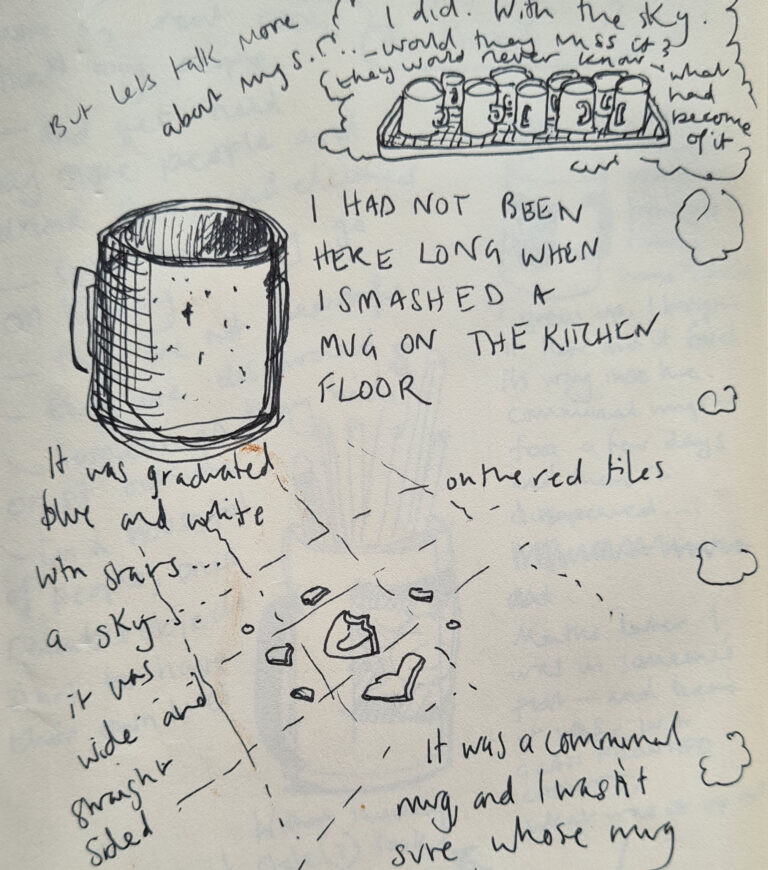 But lets talk more
about mugs.
I did. With the sky.
would they miss it?
they would never know
what
had
become
of it
I HAD NOT BEEN
HERE LONG WHEN
I SMASHED A
MUG ON THE KITCHEN
FLOOR
It was graduated
blue and white
with stars...
a sky
it was
wide and
straight
sided
on the red tiles
It was a communal
mug, and I wasn't
sure whose mug